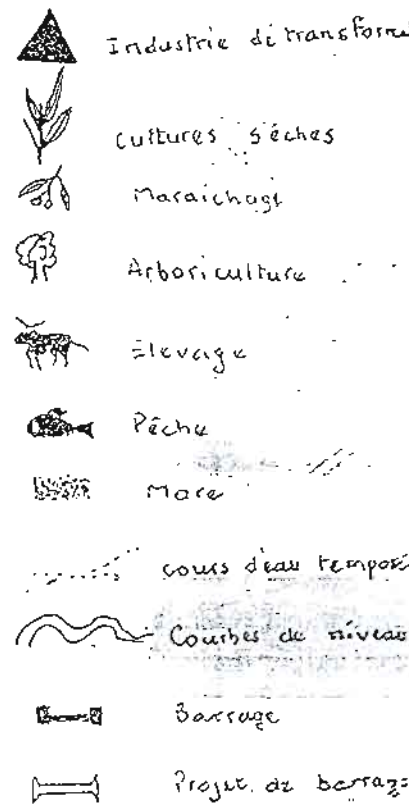 Industrie de transforma
Cultures sèches
Maraichage
Arboriculture
Elevage
Pêche
Mare
cours d'eau tempor
Courbes de niveau
Barrage
Projet de barrag